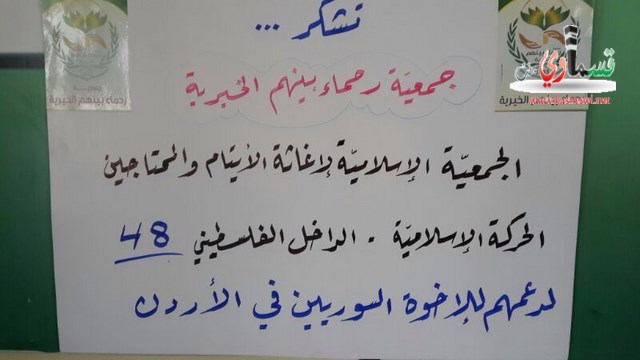 تشكر ...
جمعيّة رحماء بينهم الخيرية
الجمعيّة الإسلاميّة لإغاثة الأيتام والمحتاجين
الحركة الإسلاميّة - الداخل الفلسطيني 48
لدعمهم للإخوة السوريين في الأردن
رحماء بينهم الخيرية
قسماوي